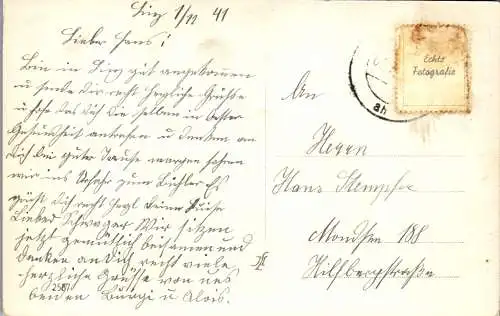 Linz 1/11 41
Lieber Hans!
Bin in Linz gut angekommen
u sende Dir recht herzliche Grüße
u hoffe das Dich die selben in bester
Gesundheit antreffen u denken an
Dich bei guter Jause morgen fahren
wir ins zum Es
grüßt Dich recht Deine Luise
Lieber Schwager Wir sitzen
jetzt gemütlich beisamen und
denken an Dich recht viele
herzliche Grüsse von uns
beiden Burgi u Alois.
2587
Echte
Fotografie
An
Herrn
Hans Stempfer
Mondsee 188
Hilfbergstraße